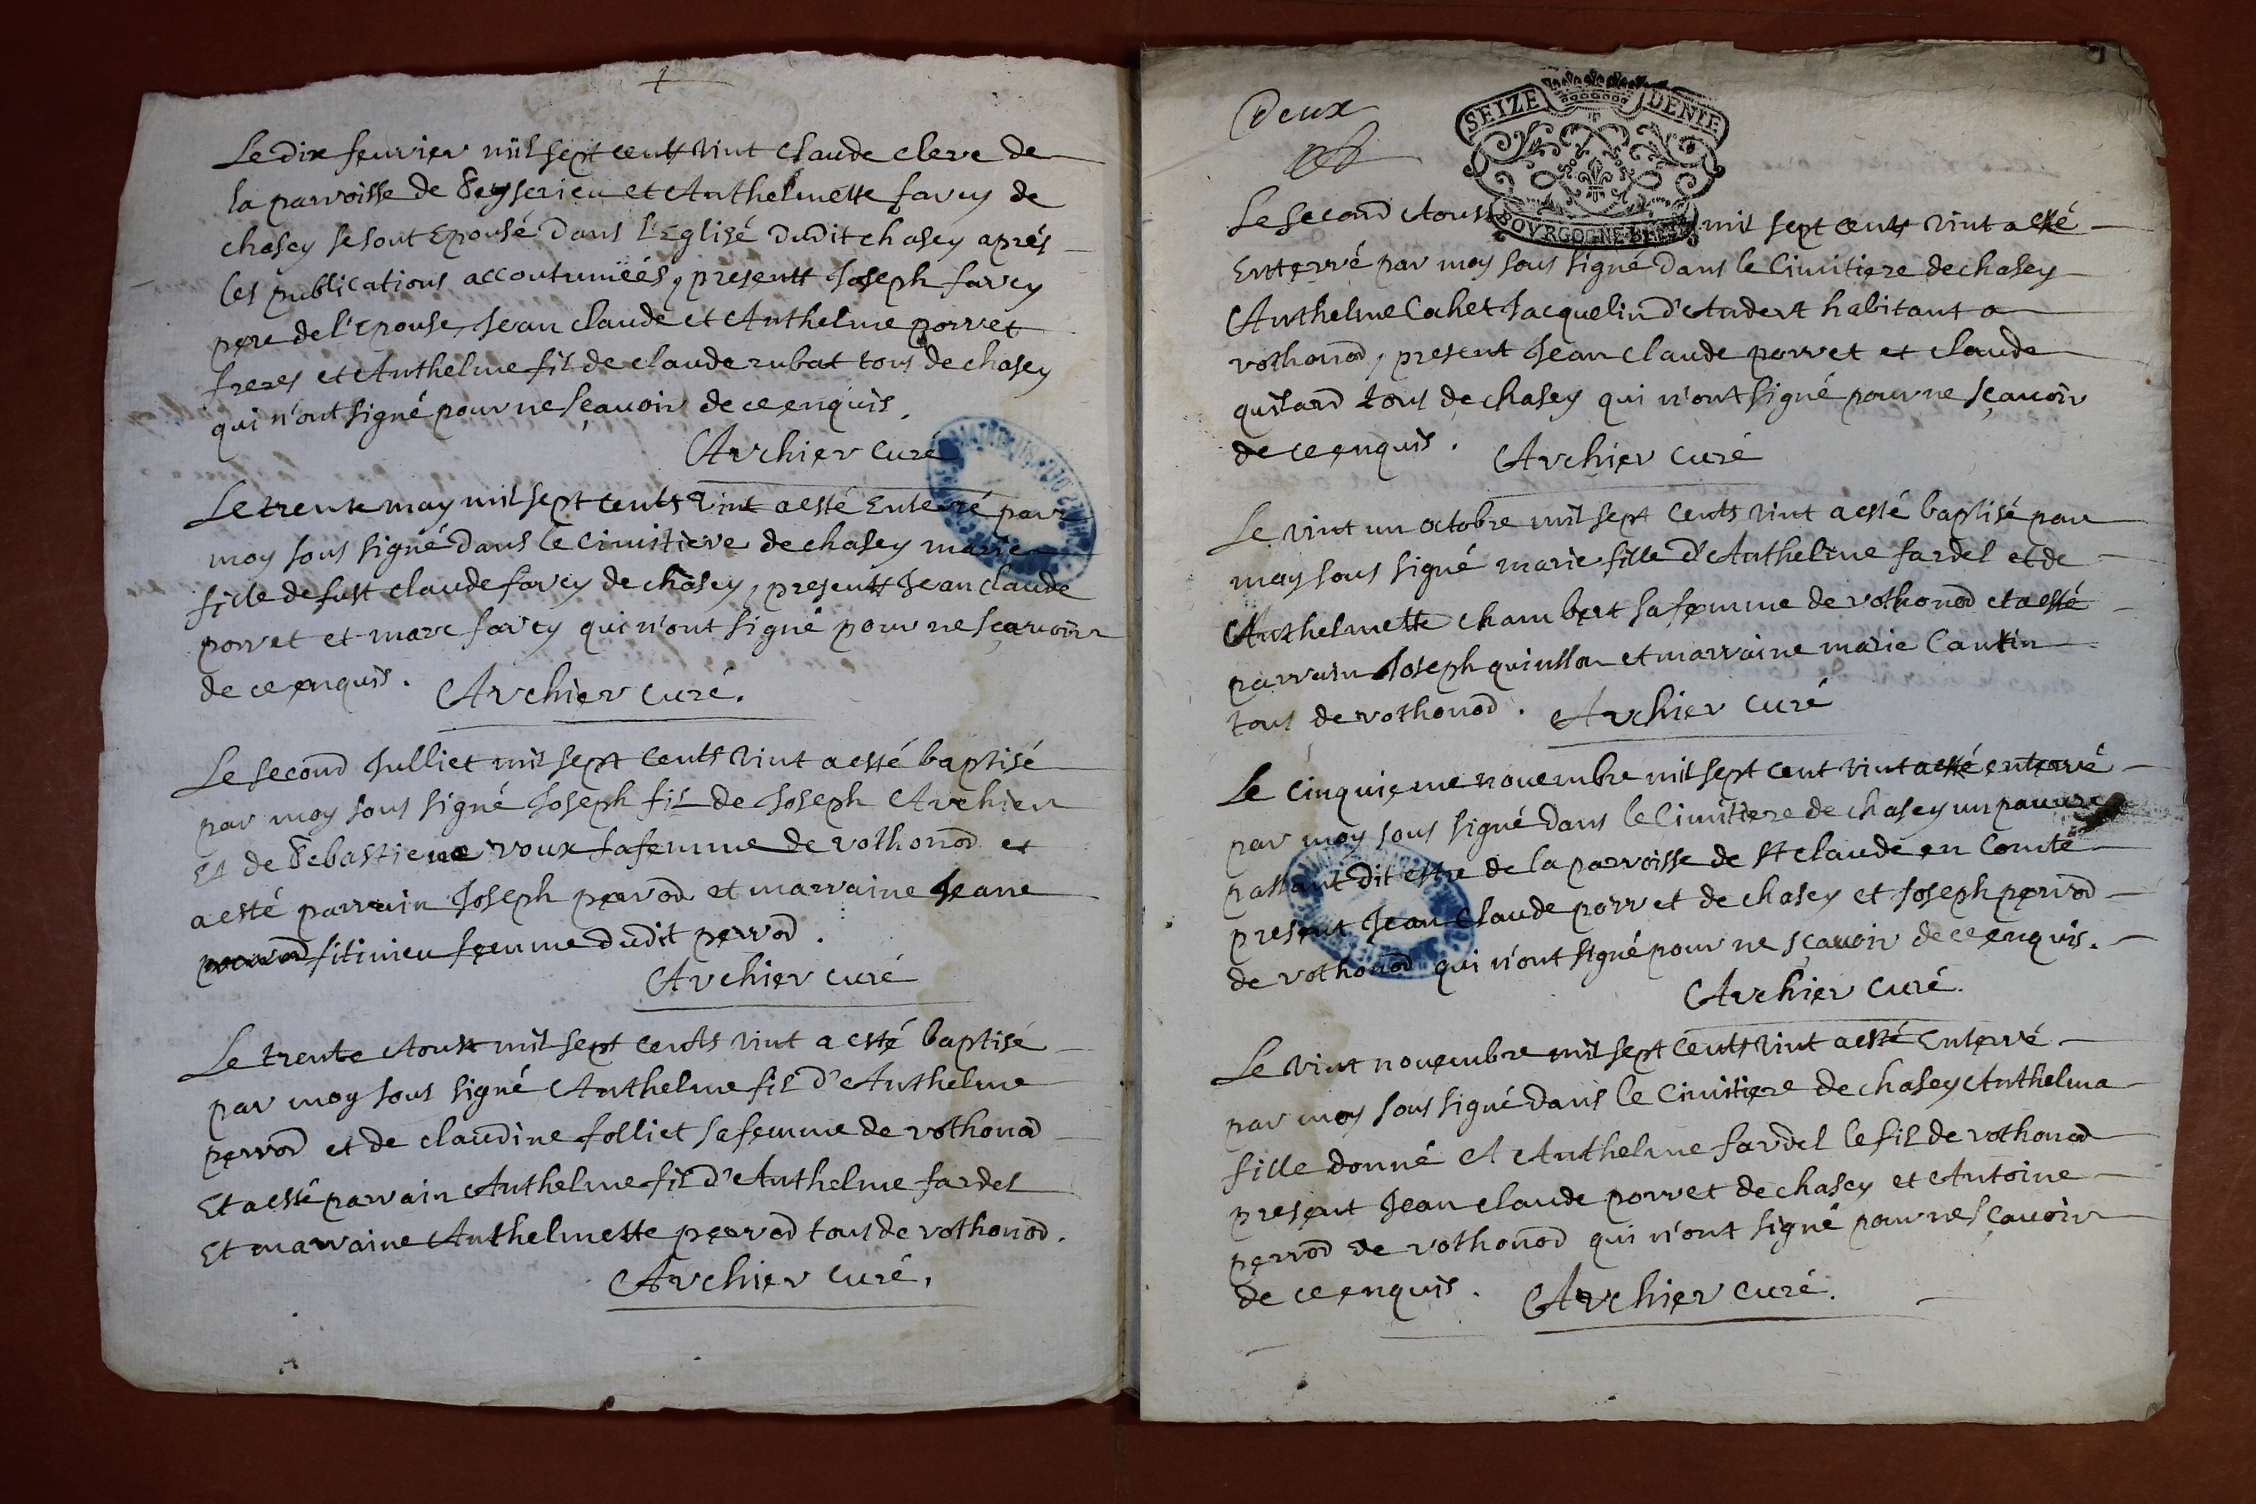 Le dix feuvrier mil sept centt vint claude clerc de
la parroisse de Seyserieu et Anthelmette farcy de
chasey se sont Epousé dans l'Eglisé dudit chasey aprés
les publications accoutumëés, presentt Joseph farcy
pere de l'Epouse, Jean claude et Anthelme porret
freres et Anthelme fil de claude rubat tous de chasey
qui n'ont signé pour ne sçavoir de ce enquis.
Archier curé
Le trente may mil sept cents vint a esté Enterré par
moy sous signé dans le cimitiere de chasey marie
fille de fust claude farcy de chasey, presentt Jean claude
porret et marc farcy qui n'ont signé pour ne sçavoir
de ce enquis.
Archier curé.
Le second Julliet mil sept cents vint a esté baptisé
par moy sous signé Joseph fil de Joseph Archier
Et de Sebastiene roux sa femme de rothonod et
a esté parrain Joseph perrod et marraine Jeane
fitinieu femme dudit perrod.
Archier curé
Le trente Aoust mil sept cents vint a esté baptisé
par moy sous signé Anthelme fil d'Anthelme
perrod et de claudine Jolliet sa femme de rothonod
Et a esté parrain Anthelme fil d'Anthelme fardel
Et marraine Anthelmette perrod tous de rothonod.
Archier curé.
Deux
SEIZE DENIE
BOVRGOGNE BRESS
Le second Aoust mil sept centt vint a esté
Enterré par moy sous signé dans le Cimitiere de chasey
Anthelme Cahet Jacquelin d'Andert habitant a
rothonod, present Jean claude porret et claude
quilard tous de chasey qui n'ont signé pour ne sçavoir
de ce enquis.
Archier curé
Le vint un octobre mil sept cents vint a esté baptisé par
moy sous signé marie fille d'Anthelme fardel et de
Anthelmette chambert sa femme de rothonod et a esté
parrain Joseph quinson et marraine marie Cantin
tous de rothonod.
Archier curé
Le cinquieme novembre mil sept cent vint a esté enterré
par moy sous signé dans le Cimitiere de chasey un pauvre
passant dit estre de la parroisse de st claude en Comté
present Jean claude porret de chasey et Joseph perrod
de rothonod qui n'ont signé pour ne sçavoir de ce enquis.
Archier curé.
Le vint novembre mil sept centt vint a esté Enterré
par moy sous signé dans le Cimitiere de chasey Anthelma
fille donné A Anthelme fardel le fil de rothonod
present Jean claude porret de chasey et Antoine
perrod de rothonod qui n'ont signé pour ne sçavoir
de ce enquis.
Archier curé.